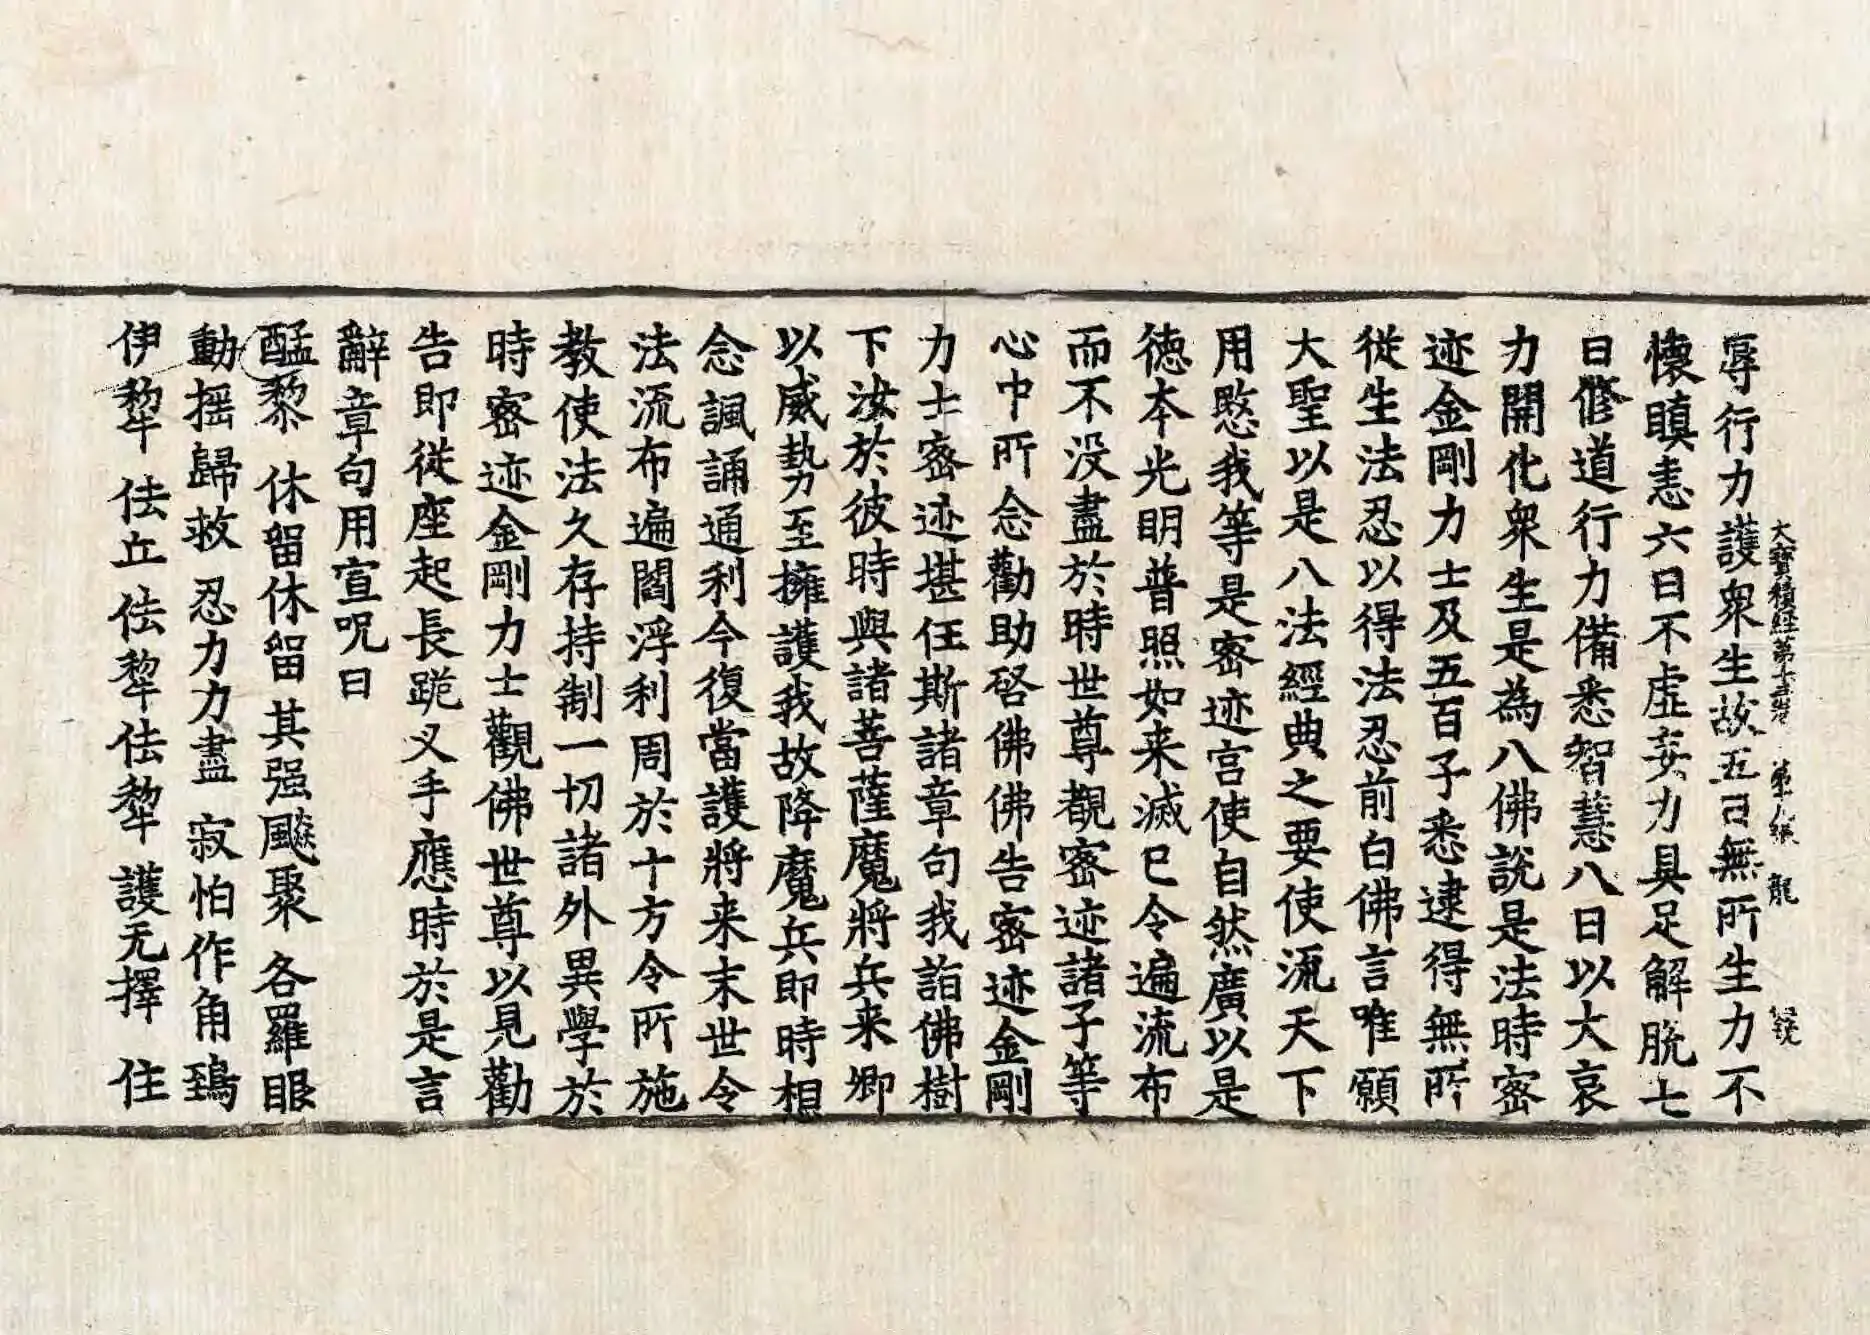 大寶積經第十四卷 第八張 龍
辱行力護衆生故五曰無所生力不
懷瞋恚六曰不虛妄力具足解脫七
曰修道行力備悉智慧八曰以大哀
力開化衆生是為八佛說是法時密
迹金剛力士及五百子悉逮得無所
從生法忍以得法忍前白佛言唯願
大聖以是八法經典之要使流天下
用愍我等是密迹宮使自然廣以是
德本光明普照如来滅已令遍流布
而不没盡於時世尊觀密迹諸子等
心中所念勸助啓佛佛告密迹金剛
力士密迹堪任斯諸章句我詣佛樹
下汝於彼時與諸菩薩魔將兵来卿
以威勢至擁護我故降魔兵即時相
念諷誦通利今復當護將来末世令
法流布遍閻浮利周於十方令所施
教使法久存持制一切諸外異學於
時密迹金剛力士觀佛世尊以見勸
告即從座起長跪叉手應時於是言
辭章句用宣呪曰
醯黎 休留休留 其强颰聚 各羅眼
動揺歸救 忍力力盡 寂怕作角鵄
伊犂 佉丘 佉犂佉犂 護无擇 住